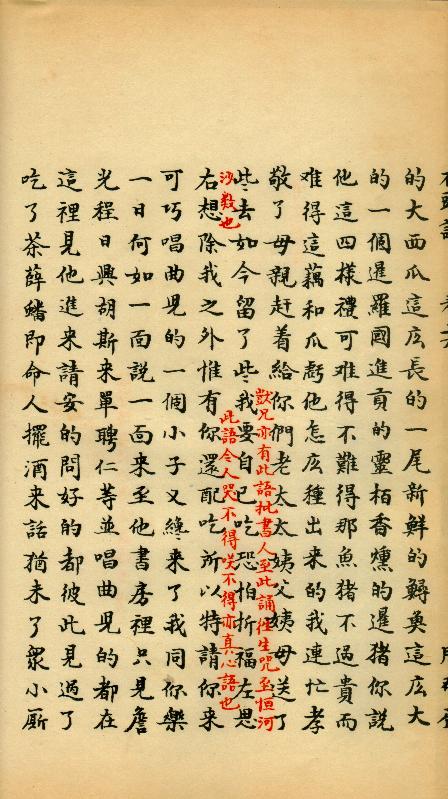 的大西瓜這広長的一尾新鮮的鱘魚這広大
的一個暹羅國進貢的靈栢香燻的暹猪你說
他這四樣禮可难得不難得那魚猪不過貴而
难得這藕和瓜虧他怎広種出来的我連忙孝
敬了母親赶着給你們老太太姨父姨母送了
獃兄亦有此語批書人至此誦徃生咒至恒河
沙数也
些去如今留了些我要自己吃恐怕折福左思
此語令人哭不得咲不得亦真心語也
右想除我之外惟有你還配吃所以特請你来
可巧唱曲児的一個小子又纔来了我同你樂
一日何如一面說一面来至他書房裡只見詹
光程日興胡斯来單聘仁等並唱曲児的都在
這裡見他進来請安的問好的都彼此見過了
吃了茶薛蟠即命人擺酒来話猶未了衆小厮